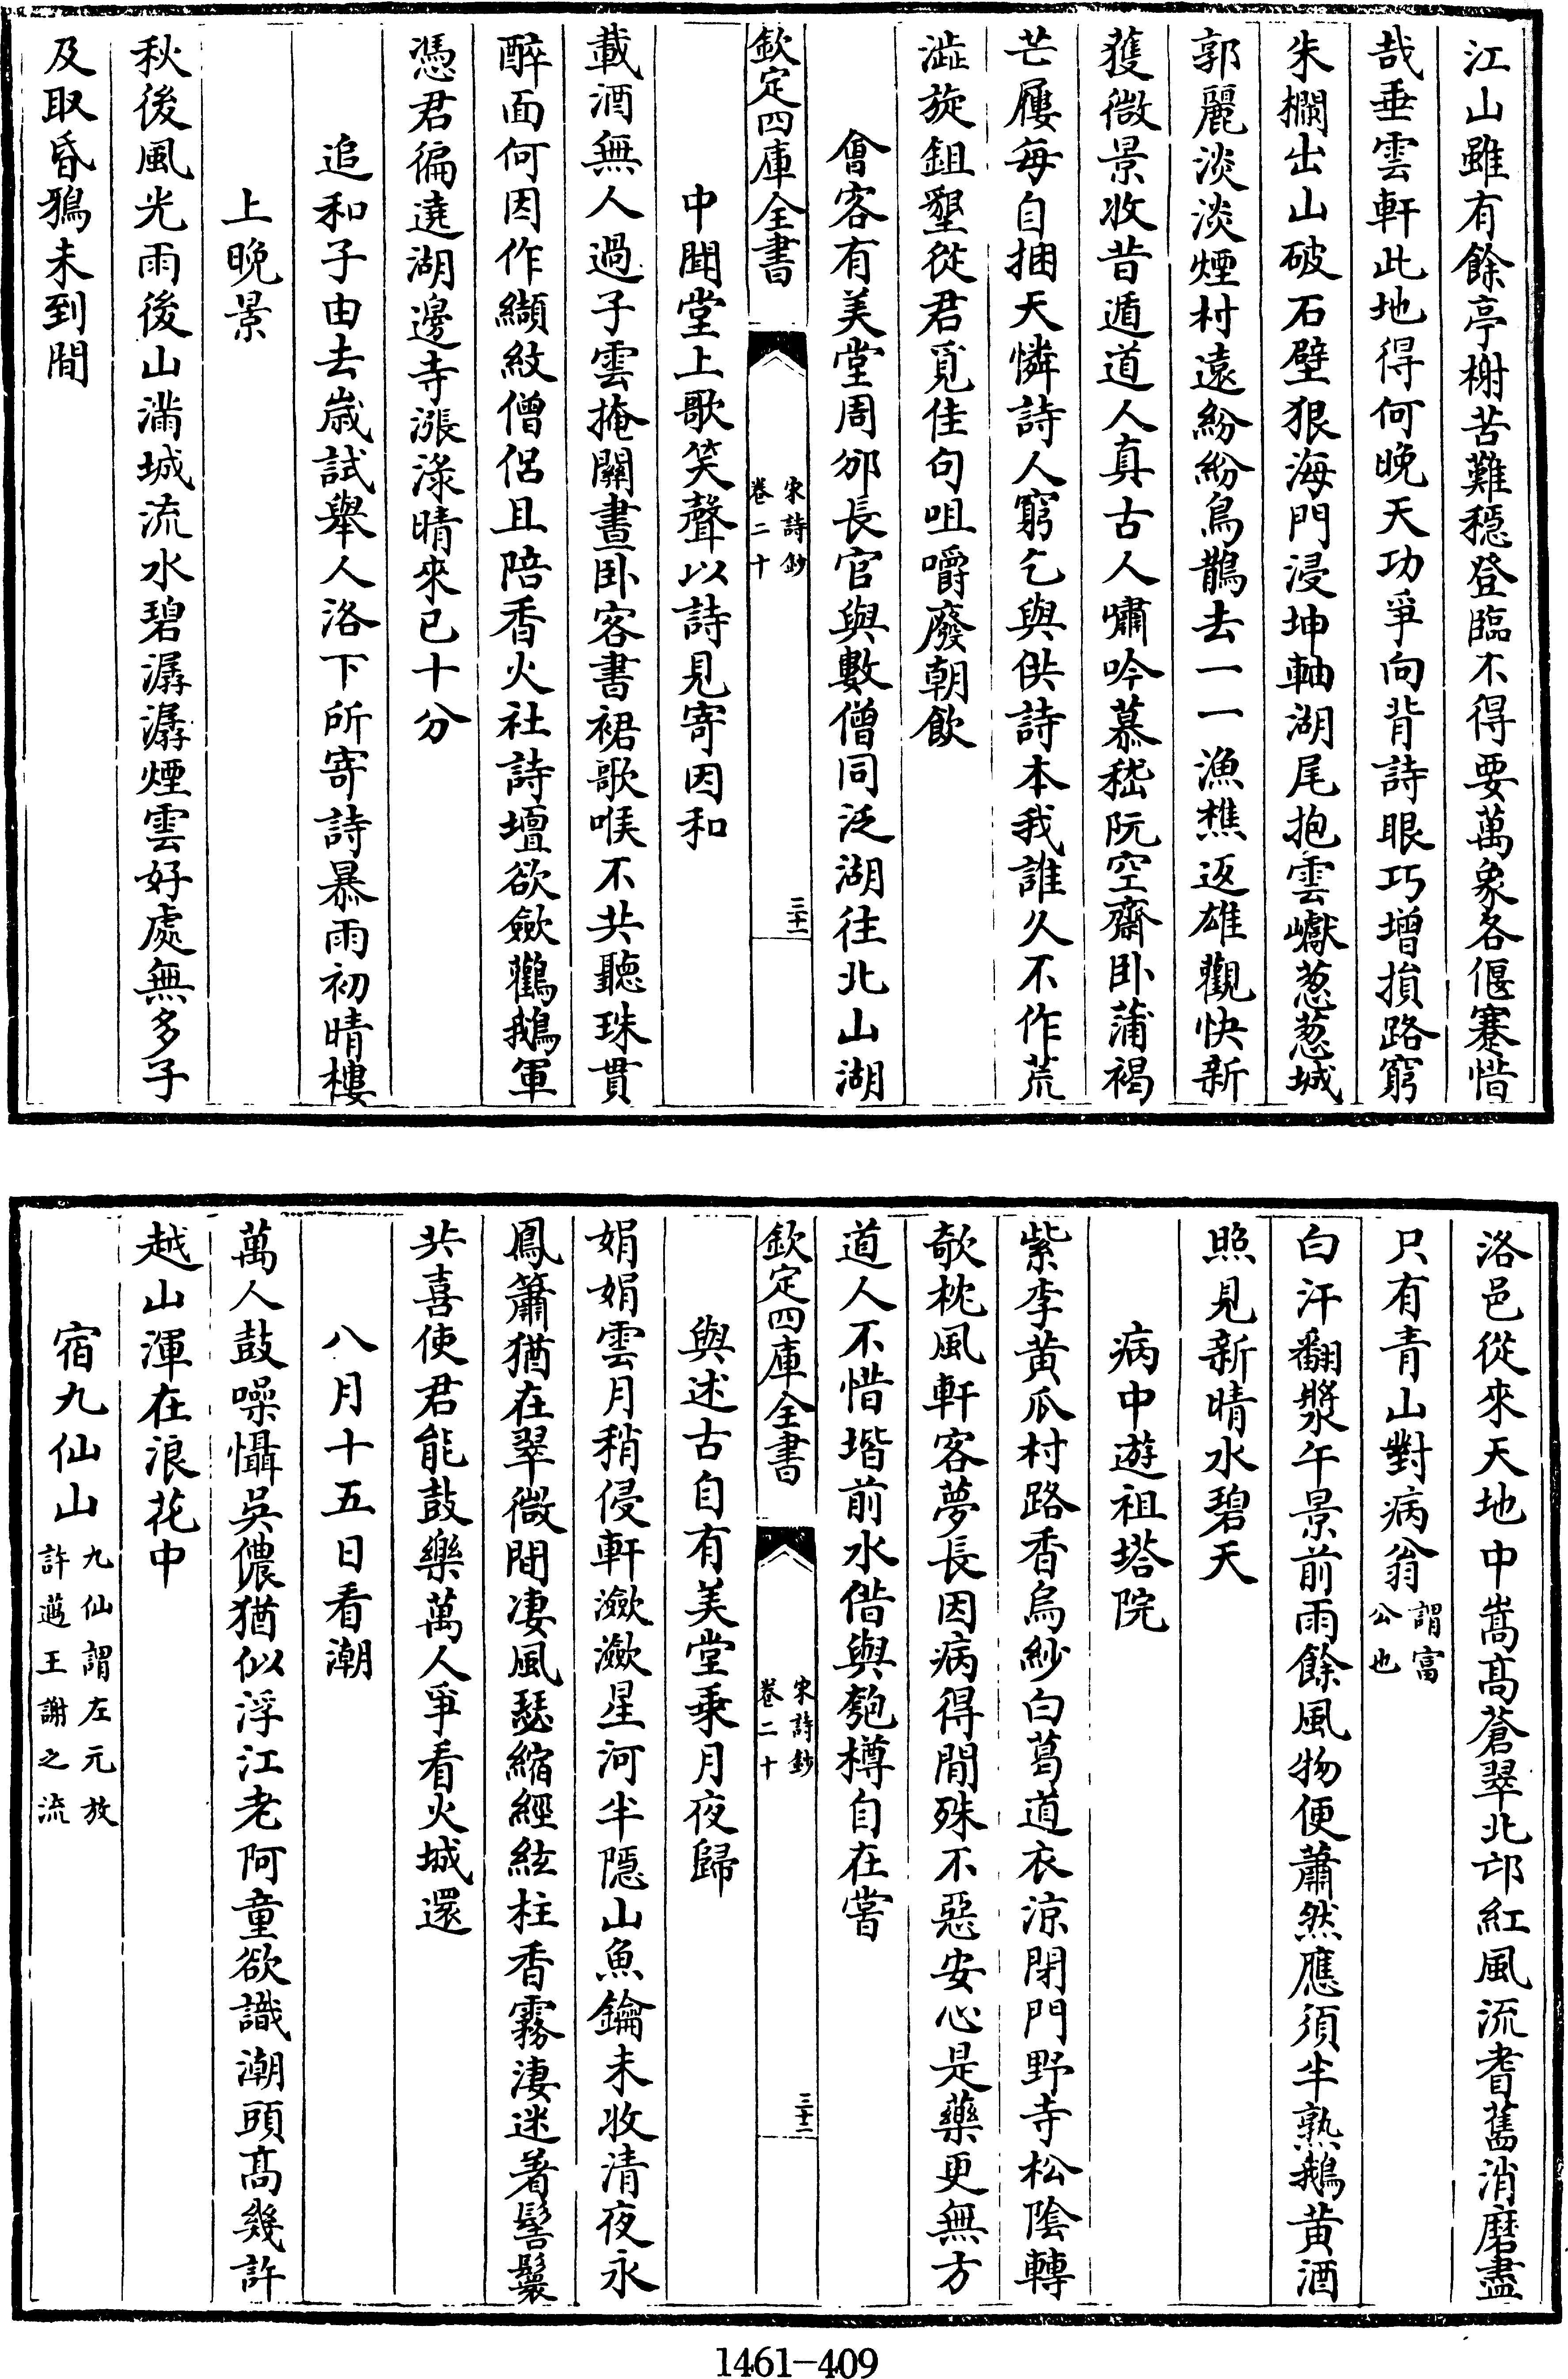 江山雖有餘亭榭苦難穩登臨不得要萬象各偃蹇惜
哉垂雲軒此地得何晚天功爭向背詩眼巧增損路窮
朱欄出山破石壁狠海門浸坤軸湖尾抱雲巘葱葱城
郭麗淡淡煙村遠紛紛鳥鵲去一一漁樵返雄觀快新
獲微景收昔遁道人真古人嘯吟慕嵇阮空齋臥蒲褐
芒屨每自捆天憐詩人窮乞與供詩本我誰久不作荒
澁旋鉏墾從君覓佳句咀嚼廢朝飲
會客有美堂周邠長官與數僧同泛湖往北山湖
欽定四庫全書
宋詩鈔
卷二十
三十一
中聞堂上歌笑聲以詩見寄因和
載酒無人過子雲掩關晝臥客書裙歌喉不共聽珠貫
醉面何因作纈紋僧侶且陪香火社詩壇欲斂鸛鵝軍
憑君徧遶湖邊寺漲淥晴來已十分
追和子由去歲試舉人洛下所寄詩暴雨初晴樓
上晚景
秋後風光雨後山滿城流水碧潺潺煙雲好處無多子
及取昏鴉未到間
洛邑從來天地中嵩高蒼翠北邙紅風流耆舊消磨盡
只有青山對病翁謂富公也
白汗翻漿午景前雨餘風物便蕭然應須半熟鵝黃酒
照見新晴水碧天
病中遊祖塔院
紫李黃瓜村路香烏紗白葛道衣涼閉門野寺松陰轉
攲枕風軒客夢長因病得閒殊不惡安心是藥更無方
道人不惜堦前水借與匏樽自在嘗
欽定四庫全書
宋詩鈔
卷二十
三十二
與述古自有美堂乘月夜歸
娟娟雲月稍侵軒瀲瀲星河半隱山魚鑰未收清夜永
鳳簫猶在翠微間凄風瑟縮經絃柱香霧淒迷著髻鬟
共喜使君能鼓樂萬人爭看火城還
八月十五日看潮
萬人鼓噪懾吳儂猶似浮江老阿童欲識潮頭高幾許
越山渾在浪花中
宿九仙山九仙謂左元放許邁王謝之流
1461-409